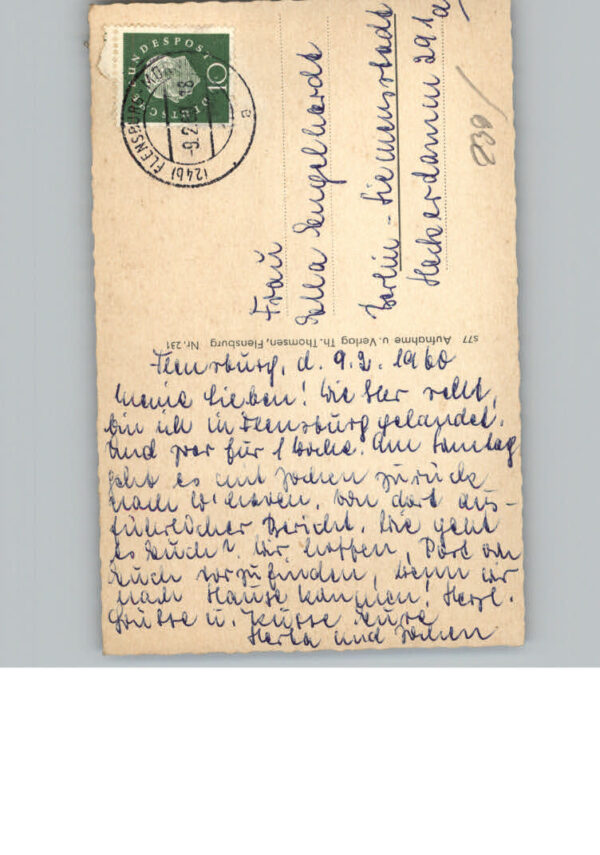 DEUTSCHE BUNDESPOST
10
(24b) FLENSBURG
-9.2.60-18
a
230
Frau
Ella Engelhardt
Berlin-Siemensstadt
Heckerdamm 291a
S77 Aufnahme u. Verlag Th. Thomsen, Flensburg Nr. 231
Flensburg, d. 9.2.1960
Meine Lieben! Wie Ihr seht,
bin ich in Flensburg gelandet.
Und zwar für 1 Woche. Am Sonntag
geht es mit Jochen zurück
nach W'haven. Von dort aus-
führlicher Bericht. Wie geht
es Euch? Wir hoffen, Post von
Euch vorzufinden, wenn wir
nach Hause kommen! Herzl.
Grüsse u. Küsse Eure
Herta und Jochen